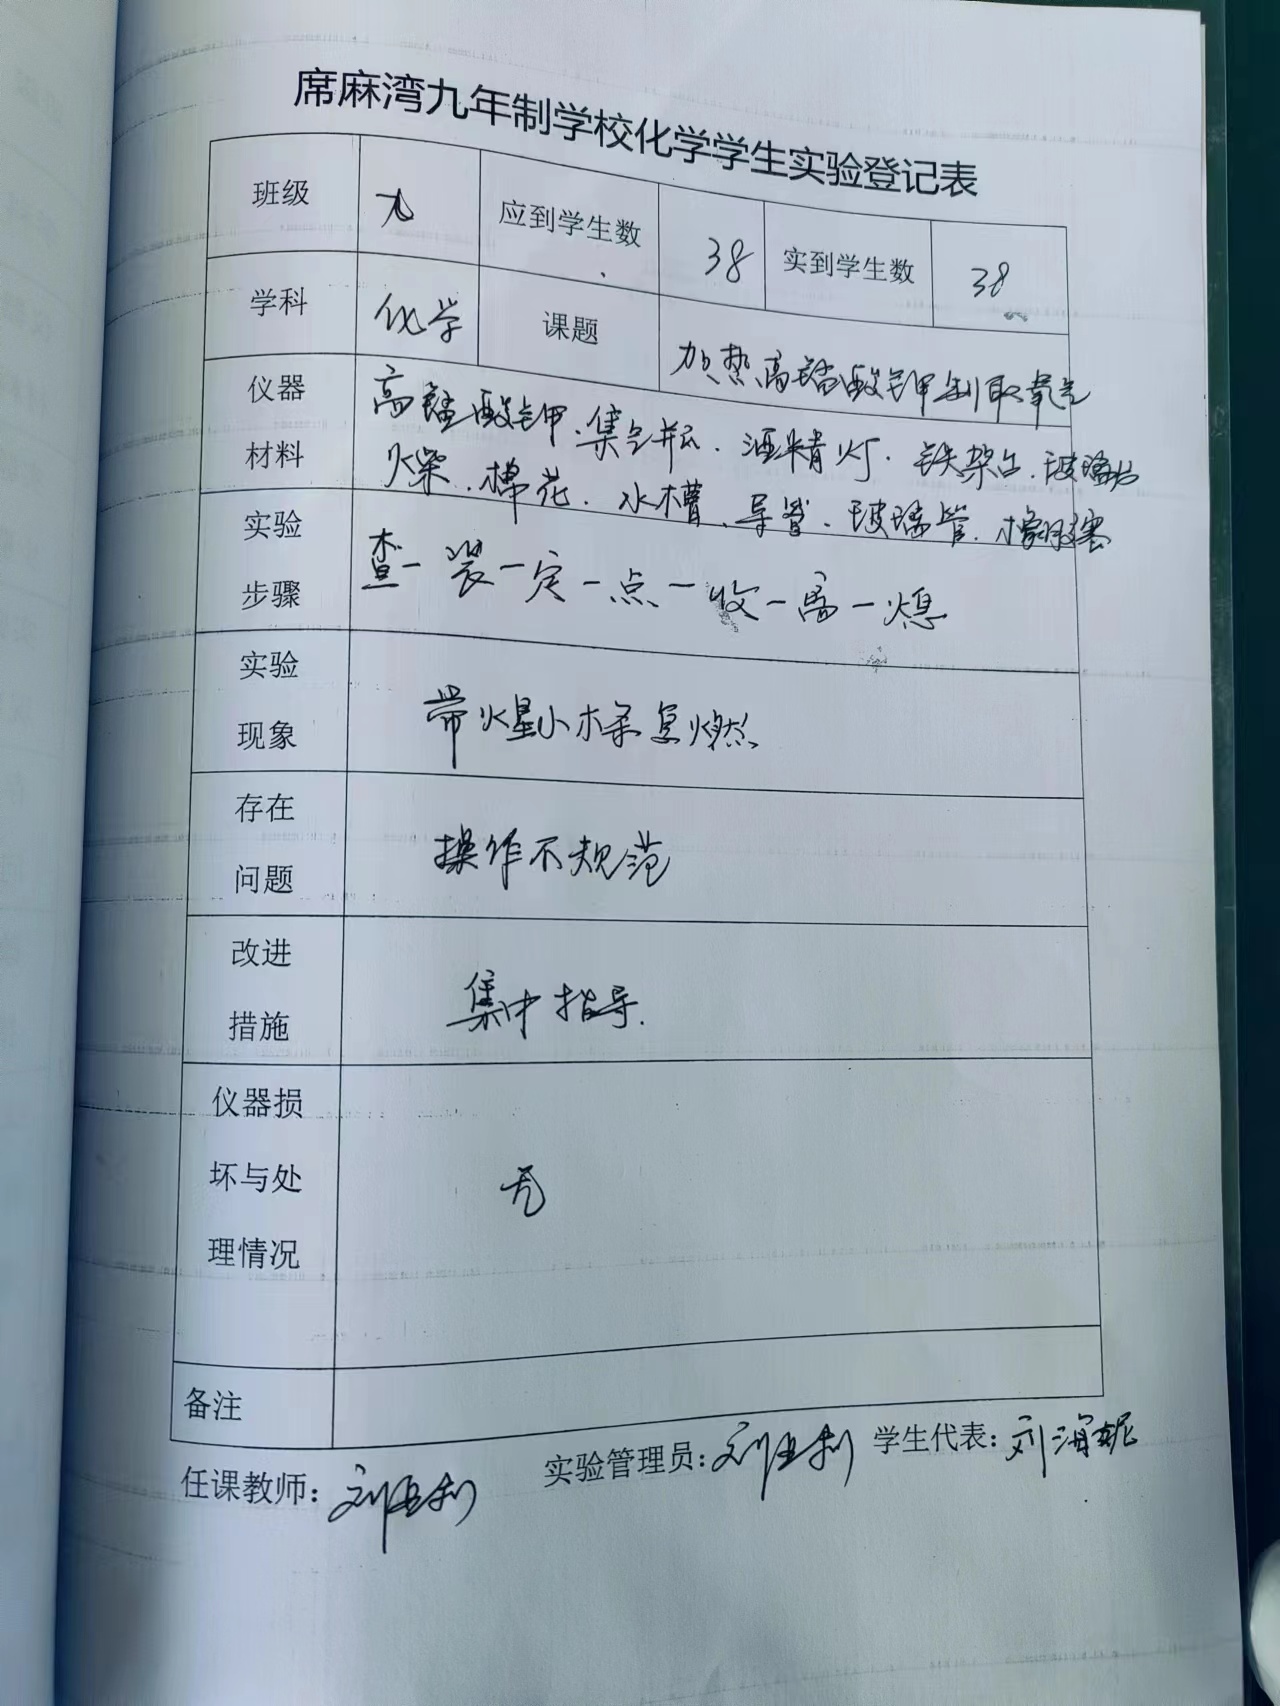 席麻湾九年制学校化学学生实验登记表
班级 九 应到学生数 38 实到学生数 38
学科 化学 课题 加热高锰酸钾制取氧气
仪器 高锰酸钾、集气瓶、酒精灯、铁架台、玻璃片
材料 火柴、棉花、水槽、导管、玻璃管、橡胶塞
实验 查一装一定一点一收一离一熄
步骤
实验
现象 带火星小木条复燃
存在
问题 操作不规范
改进
措施 集中指导.
仪器损
坏与处 无
理情况
备注
任课教师: 实验管理员: 学生代表: 刘海妮